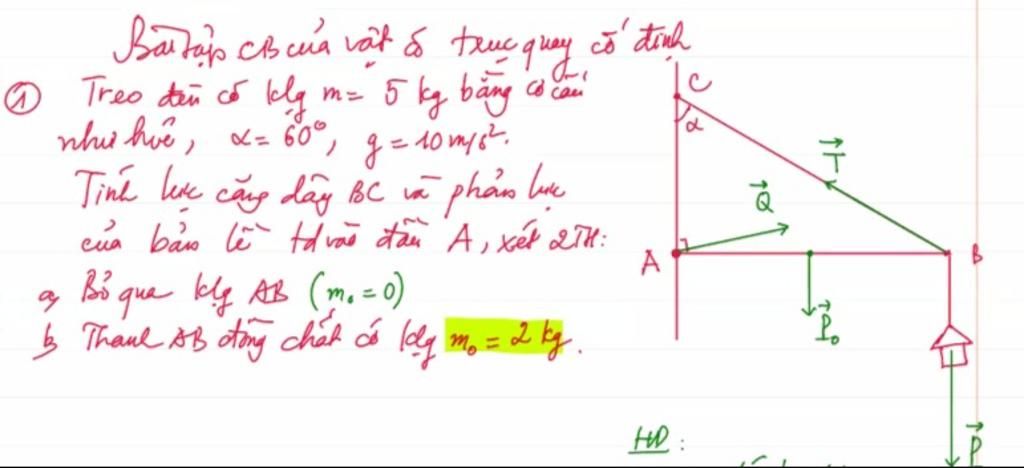 Bài tập CB của vật có trục quay cố định
① Treo đèn có klg m = 5 kg bằng cơ cấu
như hvẽ, α = 60°, g = 10 m/s².
Tính lực căng dây BC và phản lực
của bản lề td vào đầu A, xét 2TH:
a, Bỏ qua klg AB (m₀ = 0)
b, Thanh AB đồng chất có klg m₀ = 2 kg.
C
α
T
Q
A
B
P₀
HD:
P